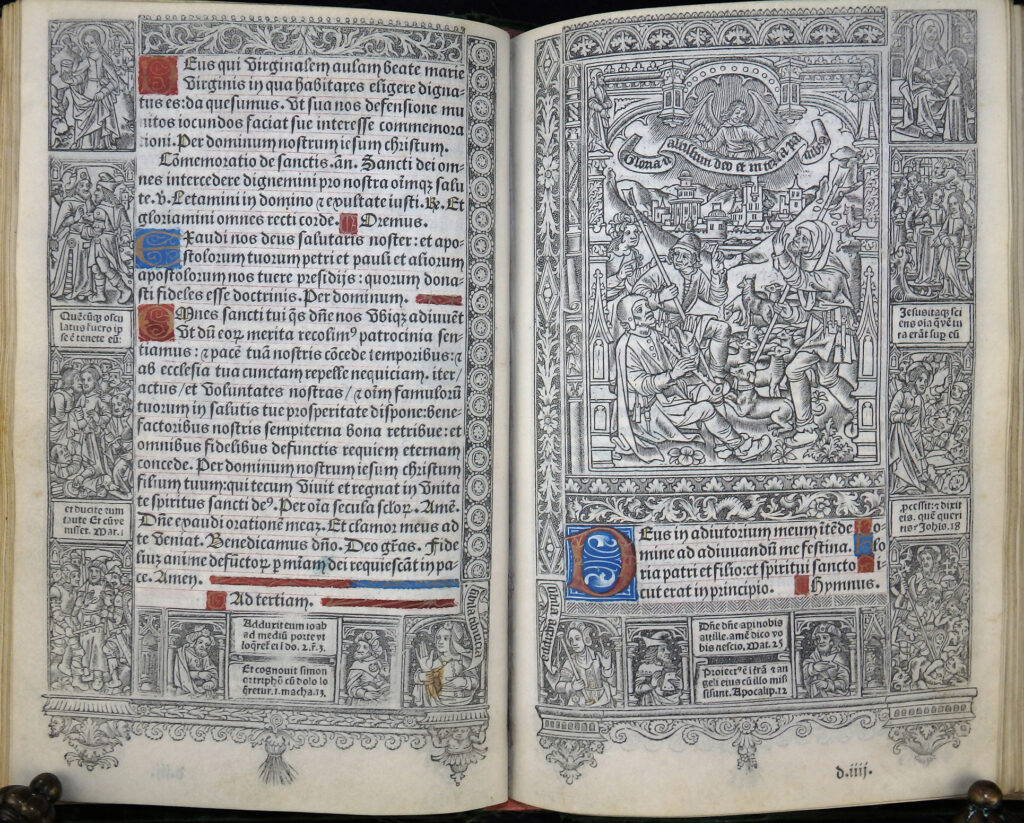 Deus qui virginalem aulam beate marie
virginis in qua habitares eligere digna
tus es: da quesumus. vt sua nos defensione mu
nitos iocundos faciat sue interesse commemora
tioni. Per dominum nostrum iesum christum.
Cõmemoratio de sanctis. añ. Sancti dei om
nes intercedere dignemini pro nostra oĩmqȝ salu
te. v. Letamini in domino ⁊ exultate iusti. ℞. Et
gloriamini omnes recti corde. Oremus.
Exaudi nos deus salutaris noster: et apo
stolorum tuorum petri et pauli et aliorum
apostolorum nos tuere presidijs: quorum dona
sti fideles esse doctrinis. Per dominum.
Omnes sancti tui qs dñe nos vbiqȝ adiuuẽt
vt dũ eoꝝ merita recolimꝰ patrocinia sen
tiamus: ⁊ pacẽ tuã nostris cõcede temporibus: ⁊
ab ecclesia tua cunctam repelle nequiciam. iter/
actus/ et voluntates nostras/ ⁊ oĩm famulorũ
tuorum in salutis tue prosperitate dispone: bene
factoribus nostris sempiterna bona retribue: et
omnibus fidelibus defunctis requiem eternam
concede. Per dominum nostrum iesum christum
filium tuum: qui tecum viuit et regnat in vnita
te spiritus sancti deꝰ. Per oĩa secula scloꝝ. Amẽ.
Dñe exaudi orationẽ meaȝ. Et clamor meus ad
te veniat. Benedicamus dño. Deo grãs. Fide
liuȝ anime defũctoꝝ ꝑ miam dei requiescãt in pa
ce. Amen.
Ad tertiam.
Quẽcũqȝ oscu
latus fuero ip
se ẽ tenete eũ:
et ducite
caute Et cũ ve
nisset. Mat. 1
Adduxit eum ioab
ad mediũ porte vt
loq̃ret ei ĩ do. 2. r̃. 3.
Et cognouit simon
qȝ triphõ cũ dolo lo
q̃retur. 1. macha. 13.
Gloria ĩ altissimis deo et in terra pax
Deus in adiutorium meum itẽde Do
mine ad adiuuandũ me festina. Glo
ria patri et filio: et spiritui sancto Si
cut erat in principio. Hymnus.
Jesus itaqȝ sci
ens oĩa q̃ vẽtu
ra erãt suꝑ eũ
ꝓcessit: ⁊ dixit
eis. quẽ queri
tis. Johis. 18
Dñe dñe aꝑi nobis
at ille. amẽ dico vo
bis nescio. Mat. 25
Proiectꝰ ẽ ĩ trã ⁊ an
geli eius cũ illo mis
si sunt. Apocalip. 12
d.iiij.